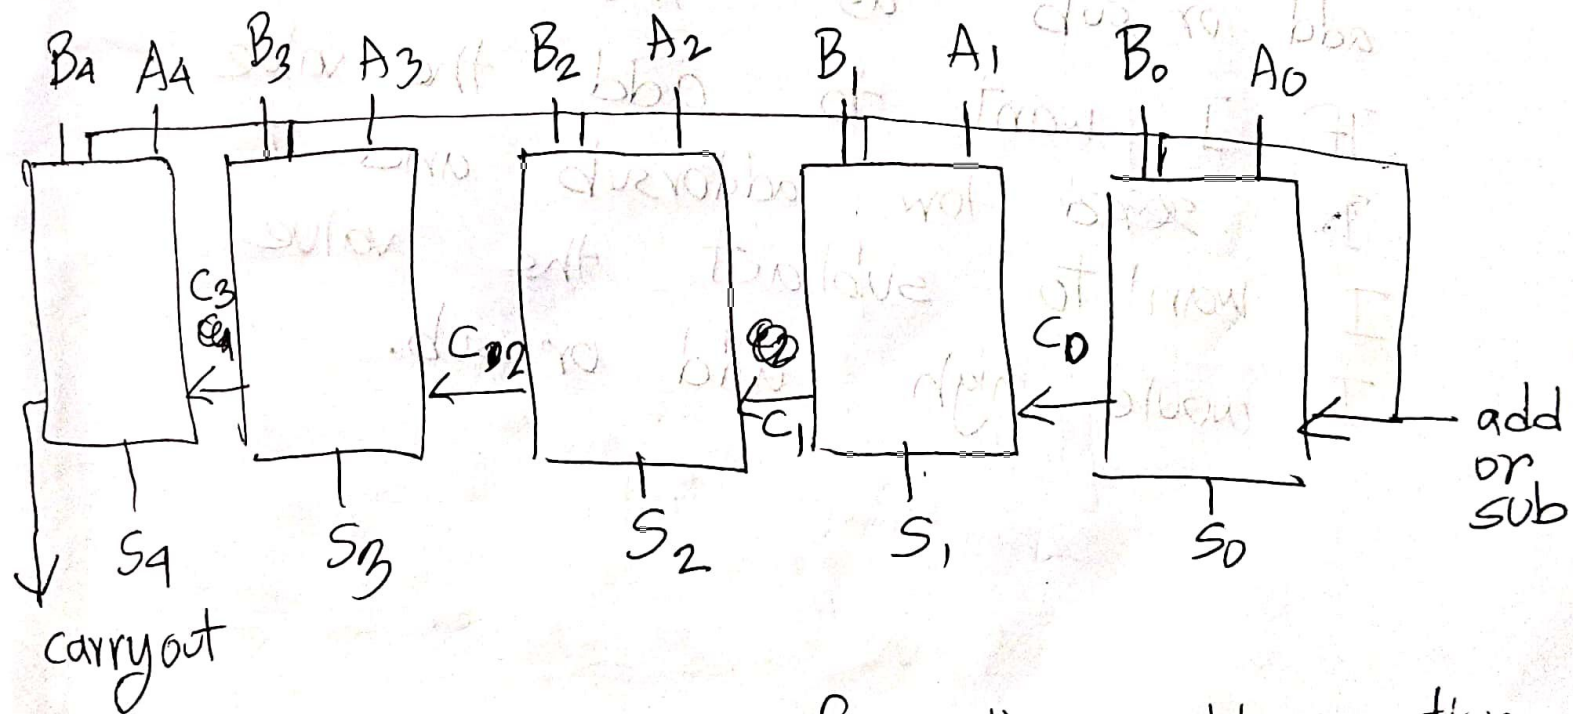 B4 A4 B3 A3 B2 A2 B1 A1 B0 A0
C3
C2 C0
C1
add
or
sub
S4 S3 S2 S1 S0
carryout